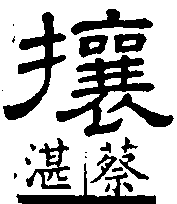 攘
湛蔡